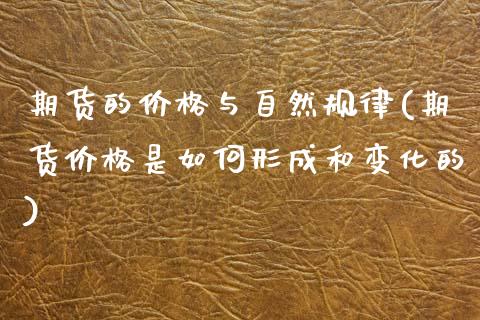 期货的价格与自然规律(期
货价格是如何形成和变化的
)